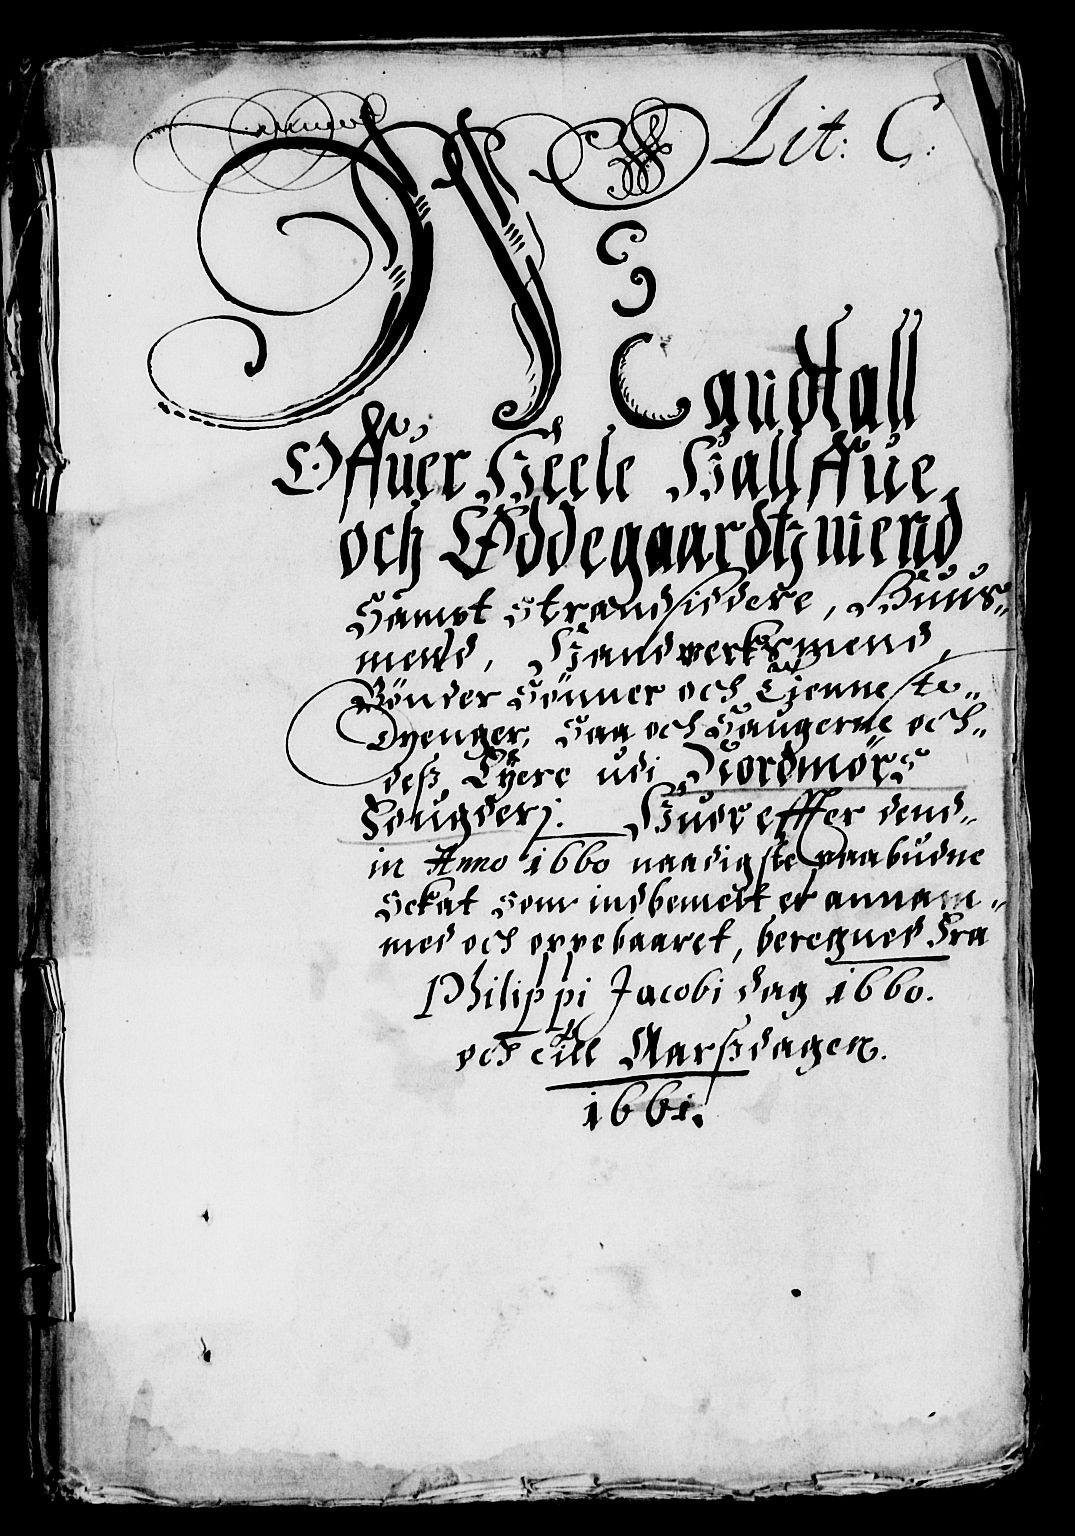 Lit: C:
N 3
Landtall
Offuer Heele Hallffue
och Øddegaardtzmend
Sampt Strandsiddere, Huus-
mend, Handwerksmend,
Bönder Sönner och Tienneste
Dyenger, Saa och Saugerne och
deß Eyere udi Nordmørs
Fougderj. Huor effter dend-
in Anno 1660 naadigste paabudne
Sckat som indbemelt er annam-
med och oppebaaret, beregned Fra
Philippi Jacobi dag 1660.
och till Aarßdagen.
1661.